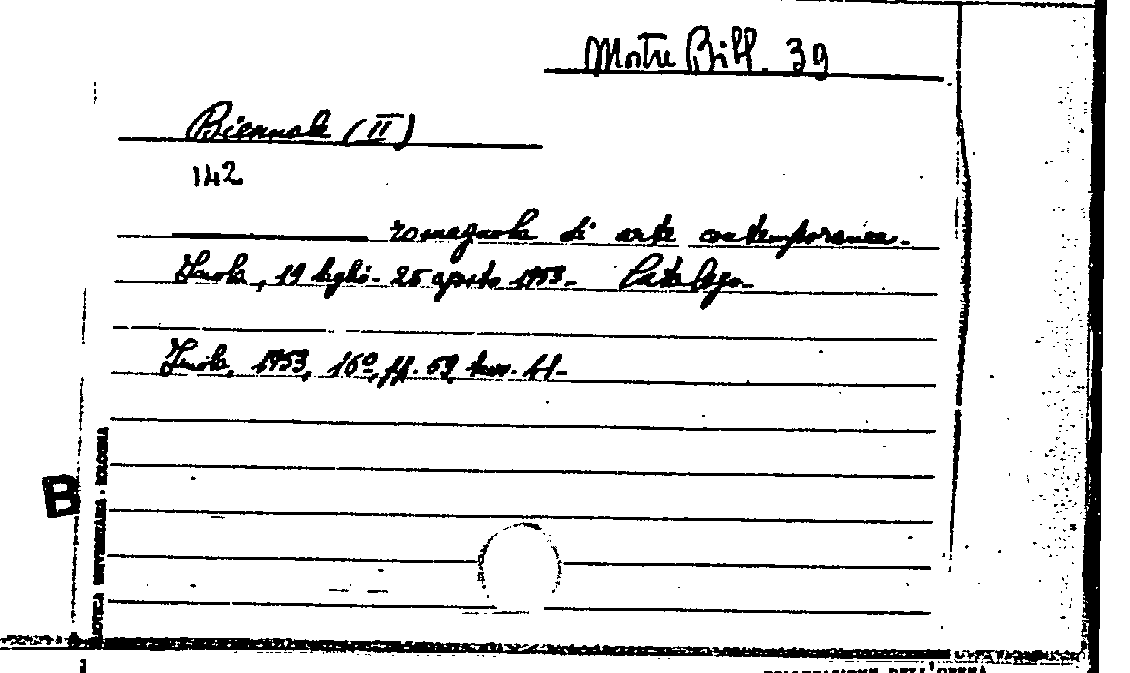 Mostre Bibl. 39
Biennale (II)
142
romagnola di arte contemporanea.
Imola, 19 luglio - 25 agosto 1953. Catalogo.
Imola, 1953, 16º, pp. 59, tav. 41.
B
BIBLIOTECA UNIVERSITARIA - BOLOGNA
DELL'OPERA